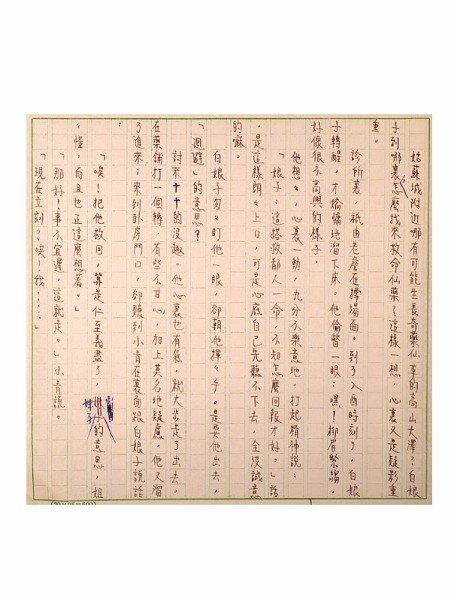 姑蘇城附近哪有可能生長奇藥仙草的高山大澤,白娘
子到哪裏怎麼找來救命仙藥?這樣一想,心裏又是疑影重
重。
診所裏,祇由老詹在撐場面。到了入酉時刻了,白娘
子轉醒,才嬌慵地溜下床。他偷瞥一眼:嘿!柳眉緊蹋,
好像很不高興的樣子。
他想々,心裏一動,九分不樂意地,打起精神說:
「娘子,這搭救韶人一命,不知怎麼回報才好。」話
是這樣朗々上口,可是心底自己先聽不下去,全沒誠意
的嘛。
白娘子匆々盯他一眼,卻朝他擇々手。是要他出去,
「迴避」的意思?
討來十十的沒趣。他心裏也有氣,就大步走了出去。
在藥鋪打一個轉,有些不甘心,加上莫名地疑慮,他又溜
了進來;來到臥房門口,卻聽到小青在裏面跟白娘子說話
:
「唉!把他救回,算是仁至義盡了,妹子的意思,姐
々懂,而且也正這麼想着。」
「那好!事不宜遲,這就走。」小青說。
「現在立刻?唉!我.....」
(20×25=500)